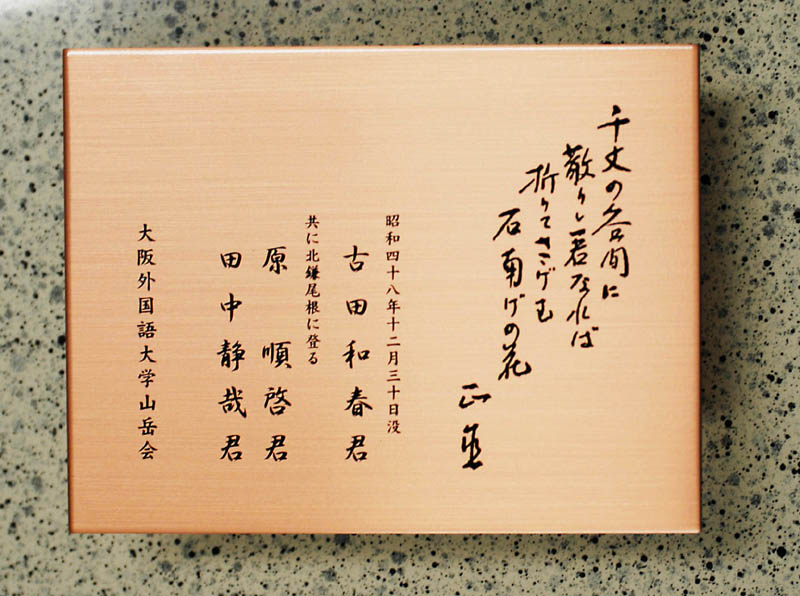 千丈の谷間に
散りし君なれば
折りてささげむ
石南げの花
正
昭和四十八年十二月三十日没
古田和春君
共に北鎌尾根に登る
原 順啓君
田中静哉君
大阪外国語大学山岳会